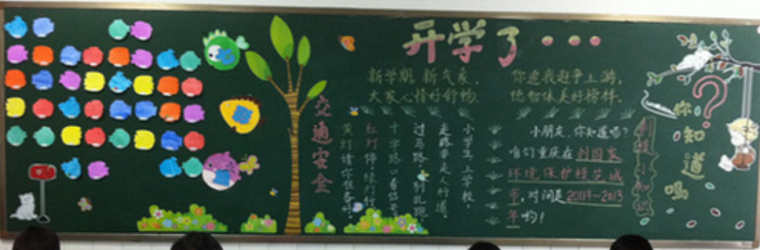 开学了...
新学期 新气象,
大家心情好舒畅.
你追我赶争上游,
德智体美好榜样.
交通安全
小学生,上学校,
走路要走人行道,
过马路
十字路口看信号
红灯停绿灯行
黄灯请你
小朋友,你知道吗?
咱们重庆在创国家
环境保护模范城
市,时间是2011-2013
年哟!
你知道吗?